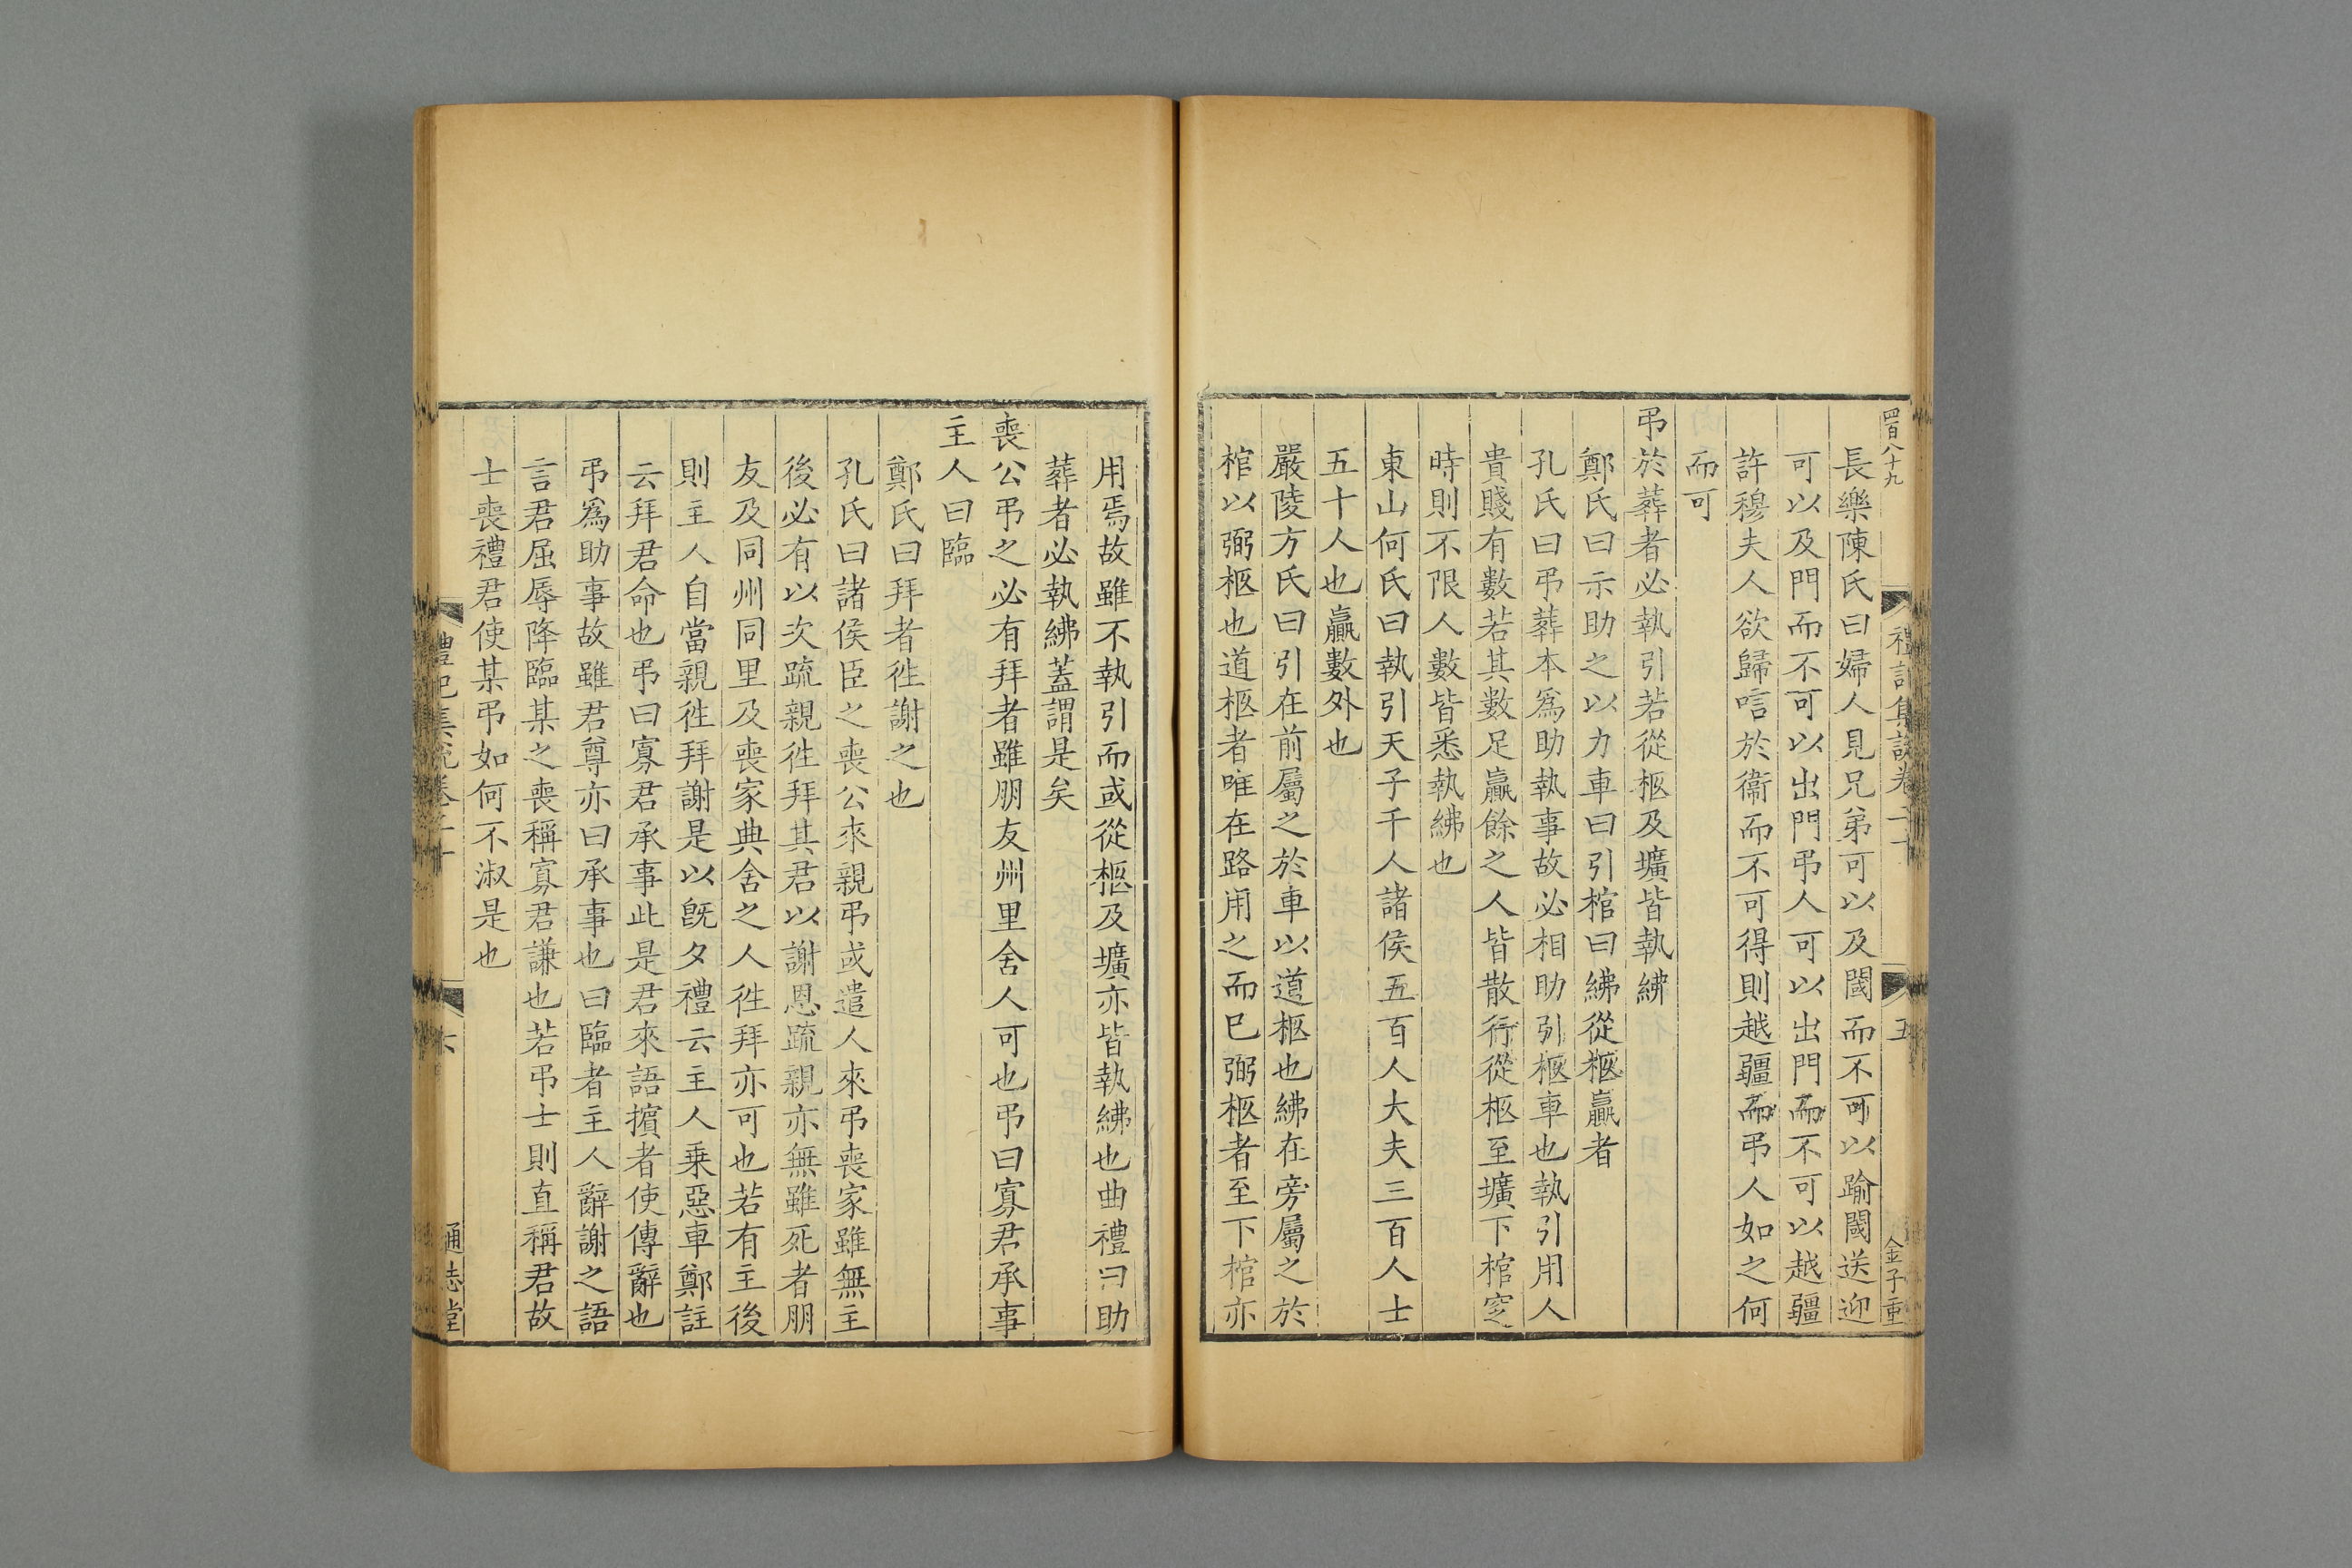 四百八十九
禮記集說卷二十
五
金子重
長樂陳氏曰婦人見兄弟可以及閾而不可以踰閾送迎
可以及門而不可以出門弔人可以出門而不可以越疆
許穆夫人欲歸唁於衞而不可得則越疆而弔人如之何
而可
弔於葬者必執引若從柩及壙皆執紼
鄭氏曰示助之以力車曰引棺曰紼從柩贏者
孔氏曰弔葬本爲助執事故必相助引柩車也執引用人
貴賤有數若其數足贏餘之人皆散行從柩至壙下棺窆
時則不限人數皆悉執紼也
東山何氏曰執引天子千人諸侯五百人大夫三百人士
五十人也贏數外也
嚴陵方氏曰引在前屬之於車以道柩也紼在旁屬之於
棺以弼柩也道柩者唯在路用之而已弼柩者至下棺亦
用焉故雖不執引而或從柩及壙亦皆執紼也曲禮曰助
葬者必執紼蓋謂是矣
喪公弔之必有拜者雖朋友州里舍人可也弔曰寡君承事
主人曰臨
鄭氏曰拜者徃謝之也
孔氏曰諸侯臣之喪公來親弔或遣人來弔喪家雖無主
後必有以次疏親徃拜其君以謝恩疏親亦無雖死者朋
友及同州同里及喪家典舍之人徃拜亦可也若有主後
則主人自當親徃拜謝是以旣夕禮云主人乗惡車鄭註
云拜君命也弔曰寡君承事此是君來語擯者使傳辭也
弔爲助事故雖君尊亦曰承事也曰臨者主人辭謝之語
言君屈辱降臨某之喪稱寡君謙也若弔士則直稱君故
士喪禮君使某弔如何不淑是也
禮記集說卷二十
六
通志堂